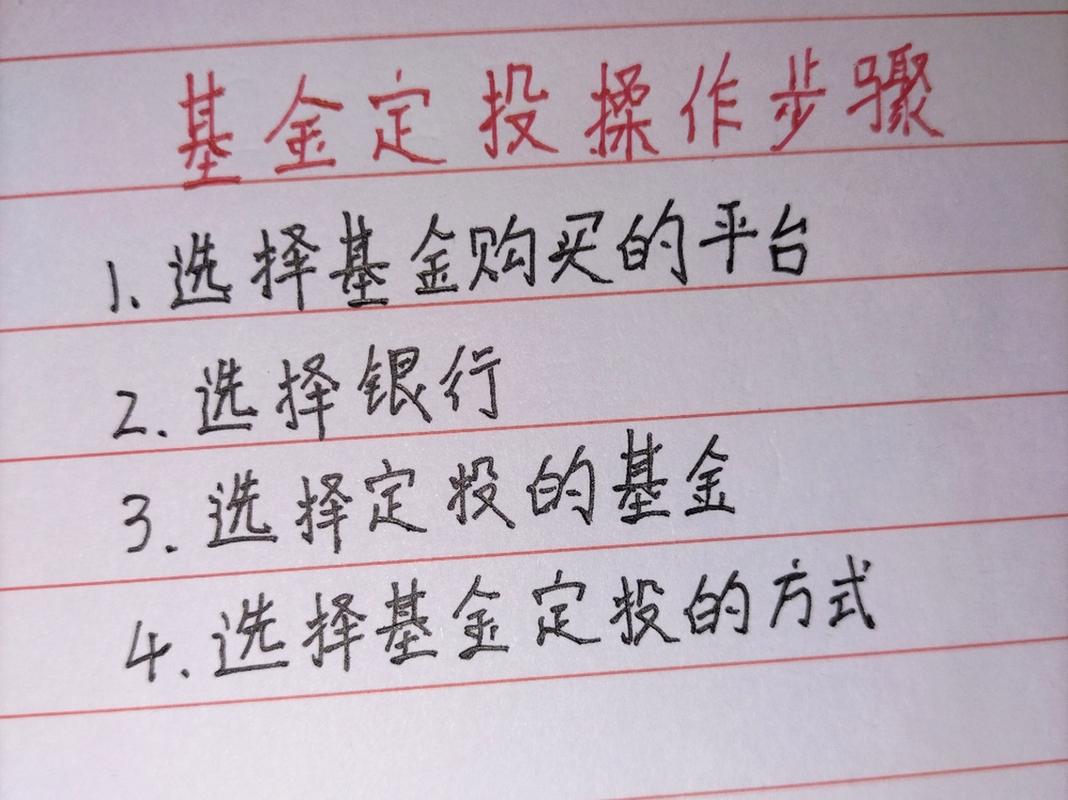 基金定投操作步骤
1. 选择基金购买的平台
2. 选择银行
3. 选择定投的基金
4. 选择基金定投的方式